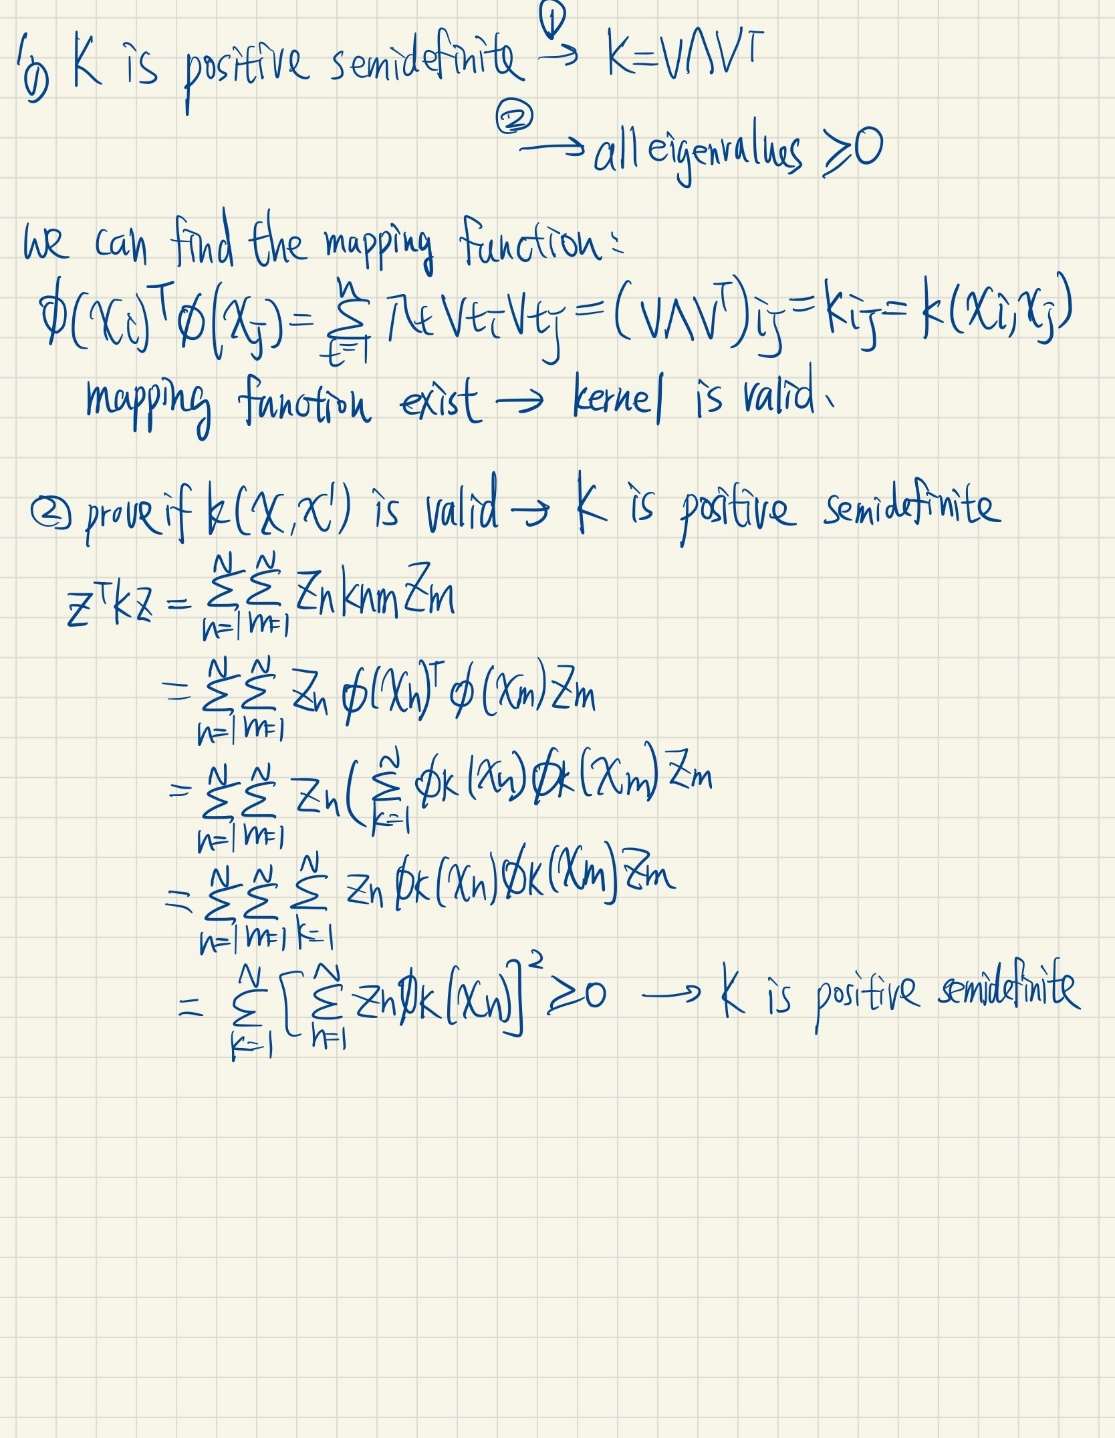 1、① K is positive semidefinite ①→ K=VΛVᵀ
②→ all eigenvalues ≥0
we can find the mapping function:
ϕ(xi)ᵀϕ(xj)= Σ_{t=1}^{n} λt Vti Vtj = (VΛVᵀ)ij = Kij = k(xi,xj)
mapping function exist → kernel is valid、
② prove if k(x,x') is valid → K is positive semidefinite
zᵀkz = Σ_{n=1}^{N} Σ_{m=1}^{N} Zn knm Zm
= Σ_{n=1}^{N} Σ_{m=1}^{N} Zn ϕ(xn)ᵀ ϕ(xm) Zm
= Σ_{n=1}^{N} Σ_{m=1}^{N} Zn ( Σ_{k=1}^{N} ϕk(xn) ϕk(xm) Zm
= Σ_{n=1}^{N} Σ_{m=1}^{N} Σ_{k=1}^{N} Zn ϕk(xn) ϕk(xm) Zm
= Σ_{k=1}^{N} [ Σ_{n=1}^{N} Zn ϕk(xn) ]² ≥0 → K is positive semidefinite